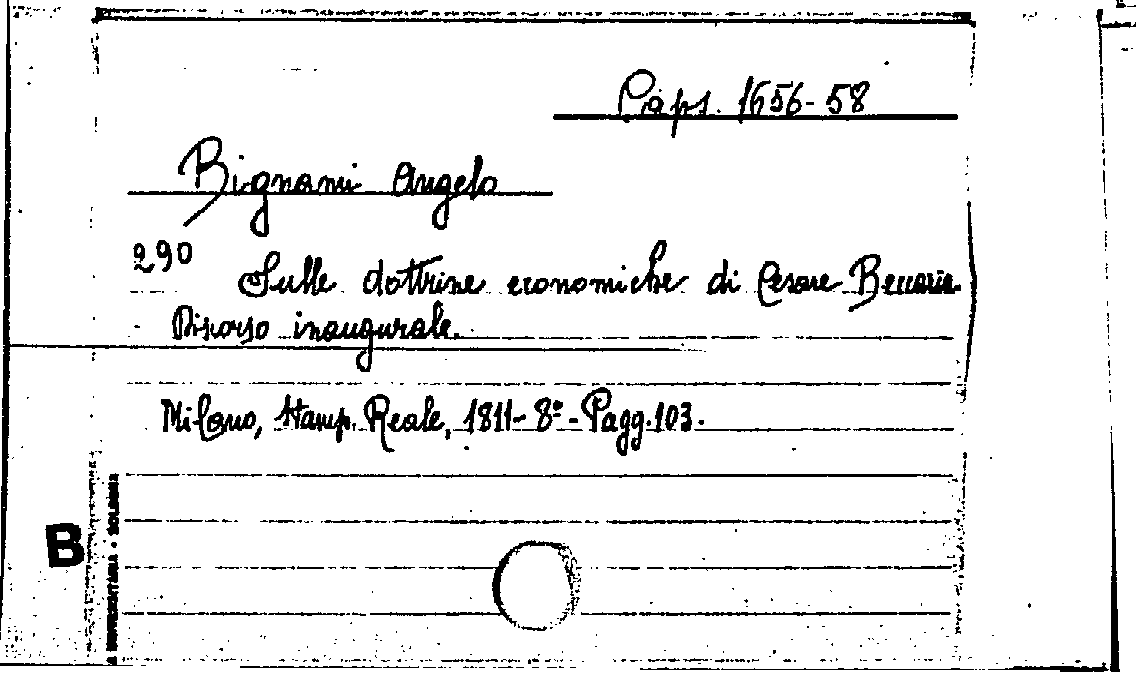 Caps. 1656-58
Bignami Angelo
290 Sulle dottrine economiche di Cesare Beccaria.
Discorso inaugurale.
Milano, Stamp. Reale, 1811- 8º - Pagg. 103.
B
BOLOGNA